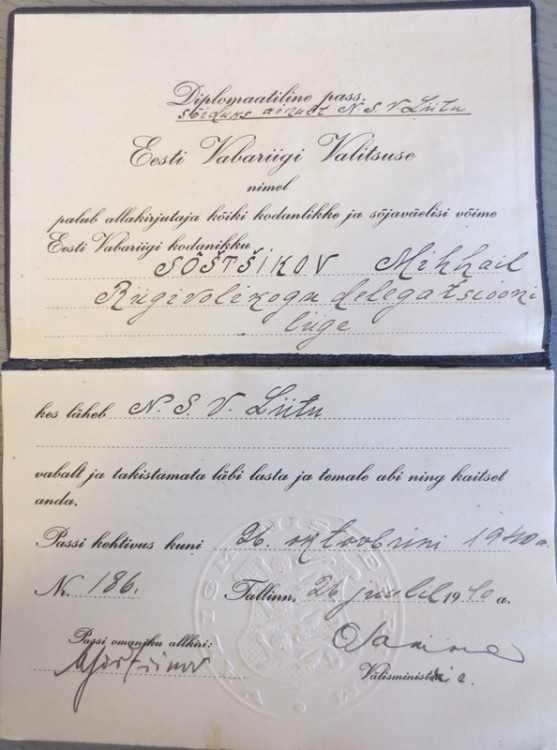 Diplomaatiline pass.
sõiduks ainult N. S. V. Liitu
Eesti Vabariigi Valitsuse
nimel
palub allakirjutaja kõiki kodanlikke ja sõjaväelisi võime
Eesti Vabariigi kodanikku
SÕŠTŠIKOV Mihhail
Riigivolikogu delegatsiooni
liige
kes läheb N. S. V. Liitu
vabalt ja takistamata läbi lasta ja temale abi ning kaitset
anda.
Passi kehtivus kuni 26. oktoobrini 1940 a.
Nr. 186. Tallinn, 26 juulil 1940 a.
Passi omaniku allkiri:
Välisministri a.
VÄLISMINISTEERIUM